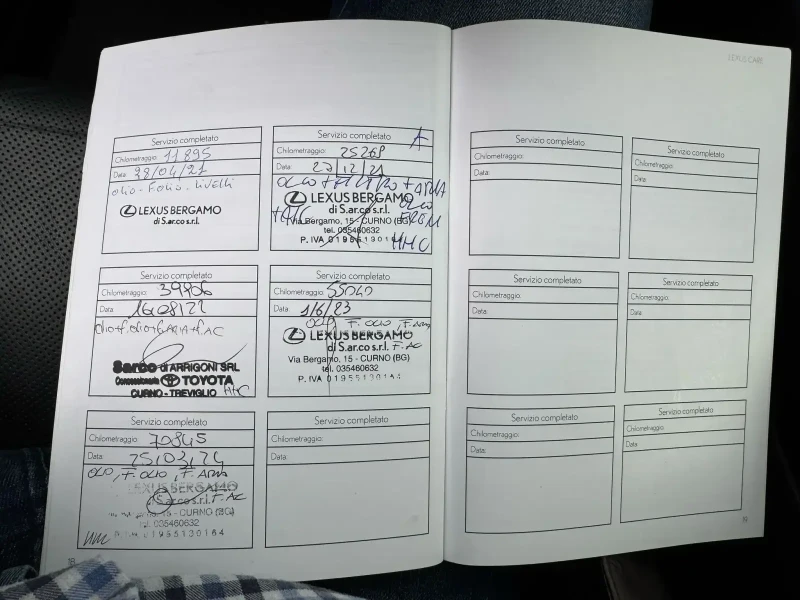 LEXUS CARE
Servizio completato
Chilometraggio: 11895
Data: 28/04/21
olio - F.olio - livelli
LEXUS BERGAMO
di S.ar.co s.r.l.
Servizio completato
Chilometraggio: 25269
Data: 27/12/21
OLIO + FILTRO + ARIA
LEXUS BERGAMO
di S.ar.co s.r.l.
Via Bergamo, 15 - CURNO (BG)
tel. 035460632
P. IVA 01955130164
HHC
Servizio completato
Chilometraggio: 39706
Data: 16/08/22
olio+f.olio+f.ARIA+f.AC
Sarco di ARRIGONI SRL
Concessionaria TOYOTA
CURNO - TREVIGLIO HHC
Servizio completato
Chilometraggio: 55040
Data: 1/6/23
OLIO F. OLIO, F. Aria
LEXUS BERGAMO
di S.ar.co s.r.l. F. AC
Via Bergamo, 15 - CURNO (BG)
tel. 035460632
P. IVA 01955130164
Servizio completato
Chilometraggio: 70845
Data: 25.03.24
OLIO, F. OLIO, F. Aria
LEXUS BERGAMO
S.ar.co s.r.l. F. AC
CURNO (BG)
tel. 035460632
P. IVA 01955130164
Servizio completato
Chilometraggio:
Data:
18
Servizio completato
Chilometraggio:
Data:
Servizio completato
Chilometraggio:
Data:
Servizio completato
Chilometraggio:
Data:
Servizio completato
Chilometraggio:
Data:
Servizio completato
Chilometraggio:
Data:
Servizio completato
Chilometraggio:
Data:
19